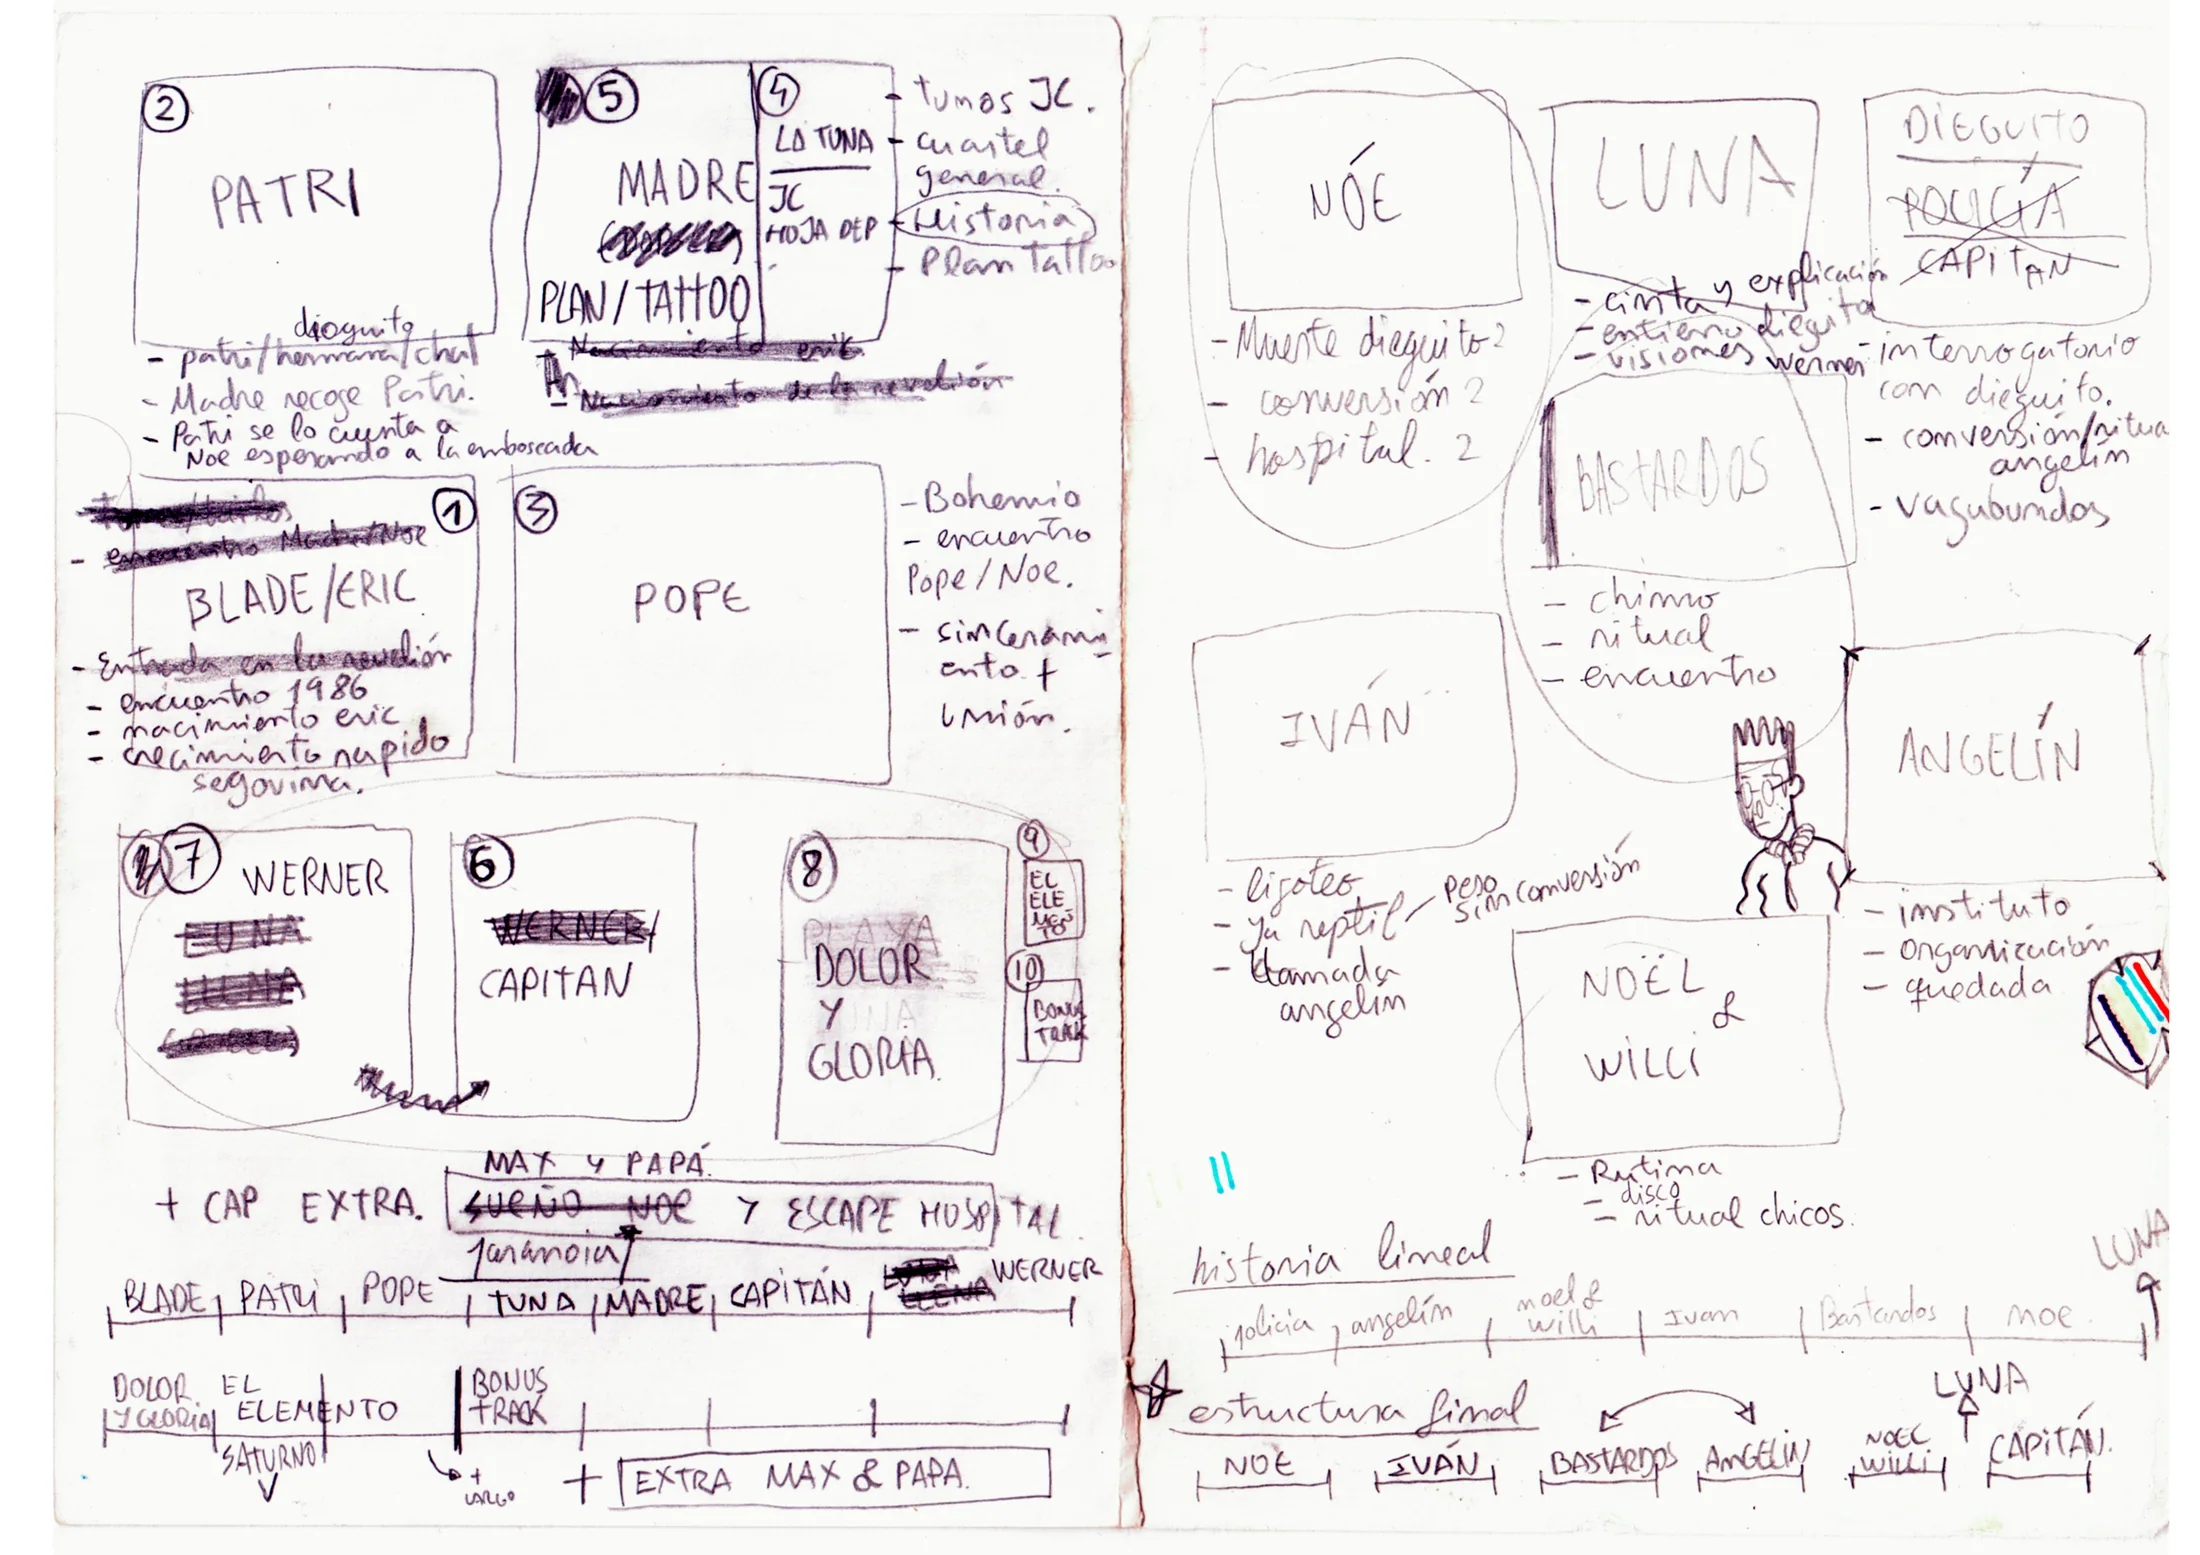 2
PATRI
dieguito
- patri/hermana/chat
- Madre recoge Patri.
- Patri se lo cuenta a
Noe esperando a la emboscada
5
MADRE
PLAN/TATTOO
- Nacimiento eric
- Nacimiento de la revelión
4
LA TUNA
JC
HOJA DEP
- Tunos JC.
- cuartel
general.
- Historia
- Plan tattoo
- encuentro Madre/Noe
1
BLADE/ERIC
- Entrada en la revelión
- encuentro 1986
- nacimiento eric
- crecimiento rapido
segovina.
3
POPE
- Bohemio
- encuentro
Pope/Noe.
- sincerami
ento +
unión.
7
WERNER
LUNA
6
WERNER/
CAPITAN
8
PLAYA
DOLOR
Y
LUNA
GLORIA.
9
EL
ELE
MEN
TO
10
BONUS
TRACK
MAX Y PAPÁ.
+ CAP EXTRA. SUEÑO NOE Y ESCAPE HOSPITAL
paranoia/
BLADE PATRI POPE TUNA MADRE CAPITÁN LUNA ELENA WERNER
DOLOR
Y GLORIA
EL
ELEMENTO
BONUS
TRACK
SATURNO
+
LARGO
+ EXTRA MAX & PAPA.
NÓE
- Muerte dieguito 2
- conversión 2
- hospital. 2
LUNA
- cinta y explicación
- entierro dieguito
- visiones werner
DIEGUITO
POLICÍA
CAPITAN
- interrogatorio
con dieguito.
- conversión/ritua
angelín
- vagabundos
BASTARDOS
- chinno
- ritual
- encuentro
IVÁN
- ligoteo
- Ya reptil - peso
sin conversión
- llamada
angelin
ANGELÍN
- instituto
- organización
- quedada
NOËL
&
WILLI
- Rutina
- disco
- ritual chicos.
historia lineal
policia angelín noel & willi Ivan Bastardos noe.
LUNA
estructura final
LUNA
NOE IVÁN BASTARDOS ANGELIN NOEL WILLI CAPITÁN.